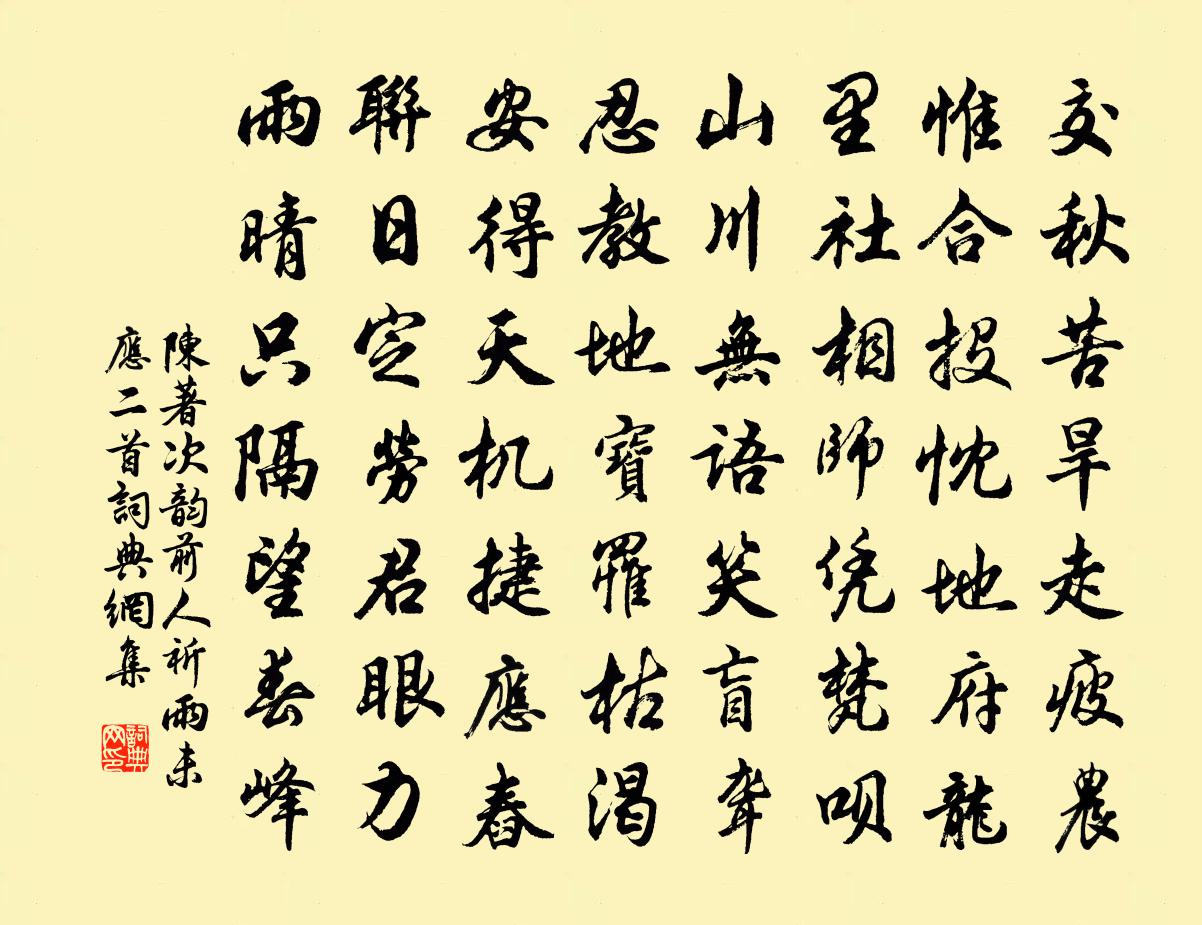 交秋苦旱走疲農
惟合投忱地府龍
里社相師凭梵唄
山川無語笑盲聋
忍教地寶罹枯渴
安得天机捷應舂
聯日定勞君眼力
雨晴只隔望春峰
陳著次韵前人祈雨未
應二首詞典網集
詞典
网印